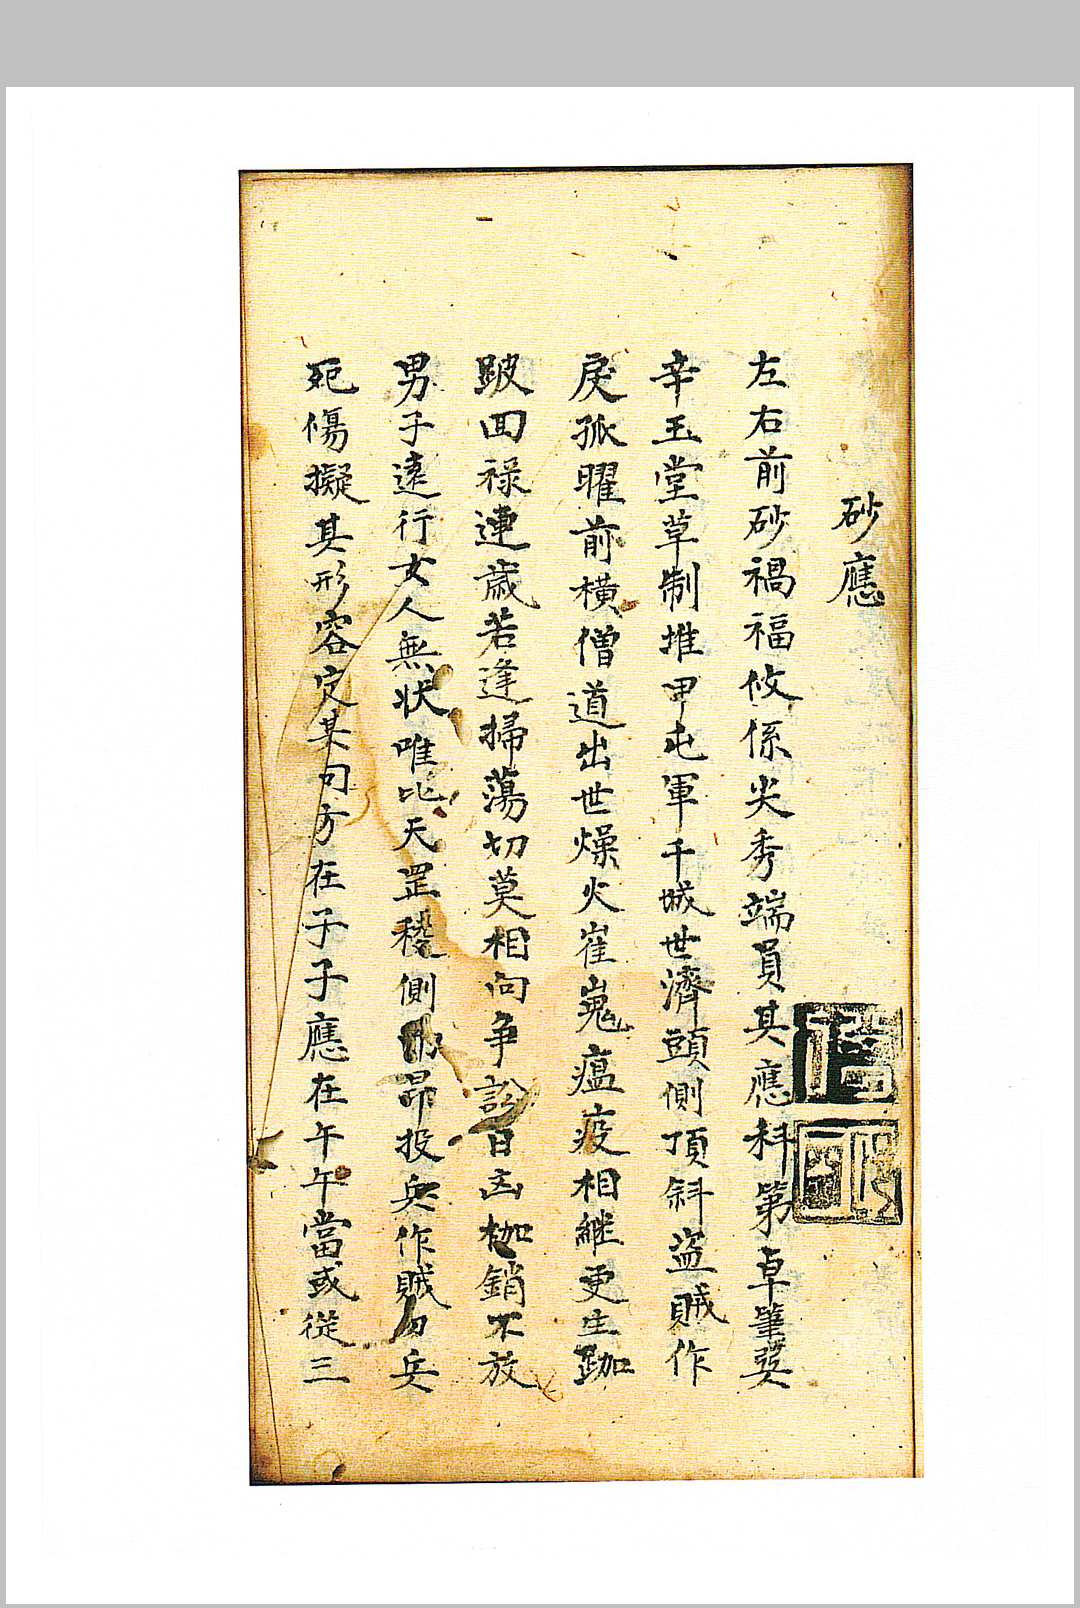 砂應
左右前砂禍福攸係尖秀端員其應科第卓筆奬
辛玉堂草制堆甲屯軍千城世濟頭側頂斜盗賊作
戾孤曜前橫僧道出世燥火崔嵬瘟疫相継更生跏
跛回禄連歳若逢掃蕩切莫相向争訟日凶枷銷不放
男子遠行女人無状唯比天罡稜側昂投兵作賊勿兵
死傷擬其形容定其句方在子子應在午午當或從三